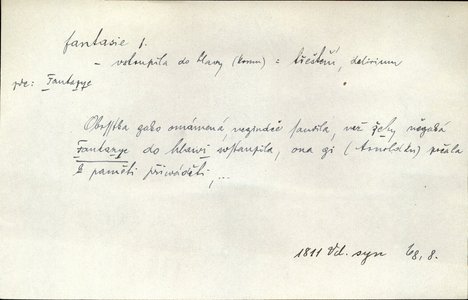 fantasie f.
– vstoupila do hlavy (komu) = třeštění, delirium
pde: Fantazye
Obrstka gako omámená neginác̆ saudila, než žeby něgaká
Fantazye do hlawi wstaupila, ona gi (Arnoldku) počala
k paměti přiwáděti, ...
1811 Vd. syn 68, 8.